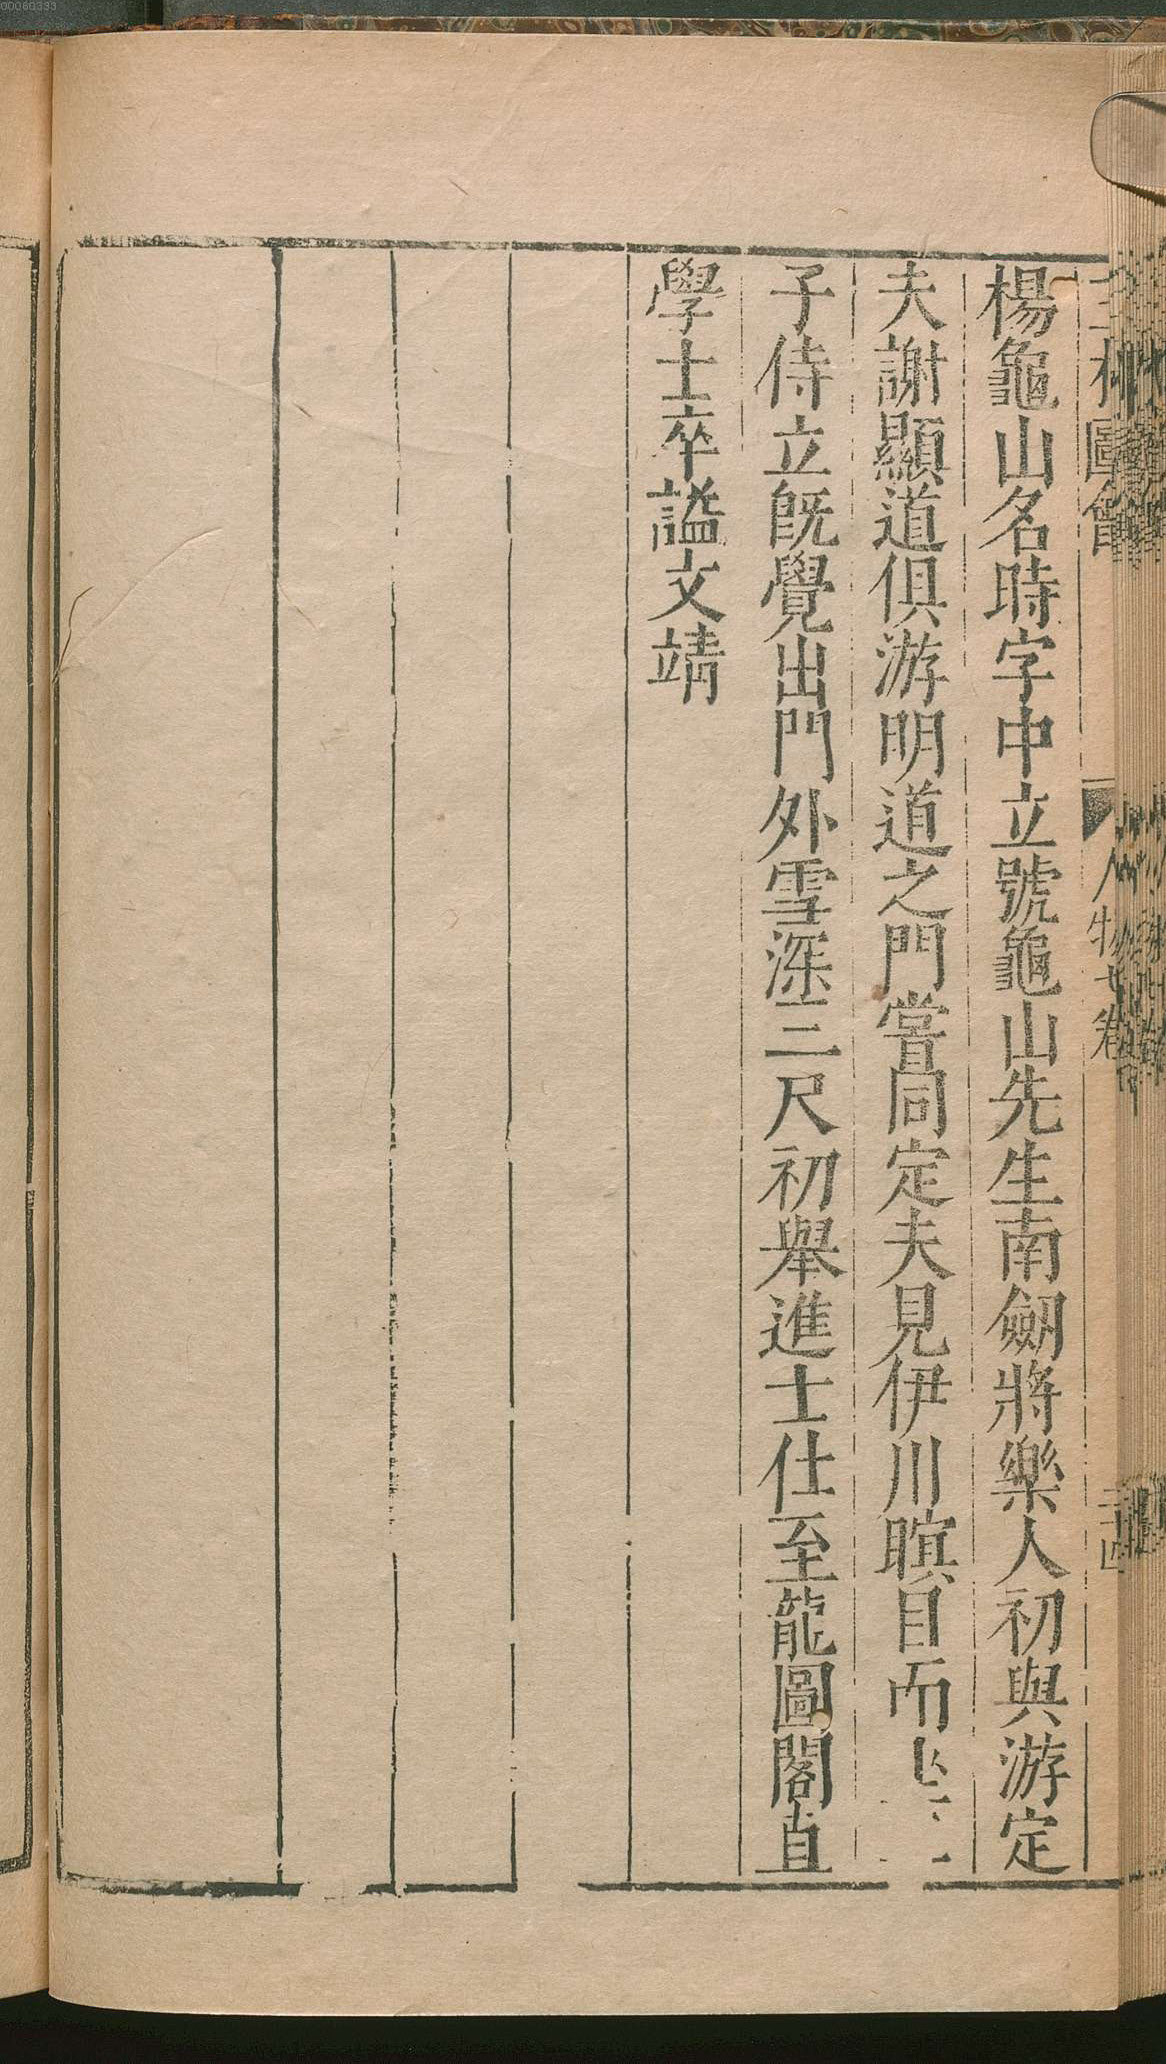 楊龜山名時字中立號龜山先生南劒將樂人初與游定
夫謝顯道俱游明道之門嘗同定夫見伊川瞑目而
子侍立旣覺出門外雪深三尺初舉進士仕至龍圖閣直
學士卒謚文靖
圖會
人物七卷
00060333